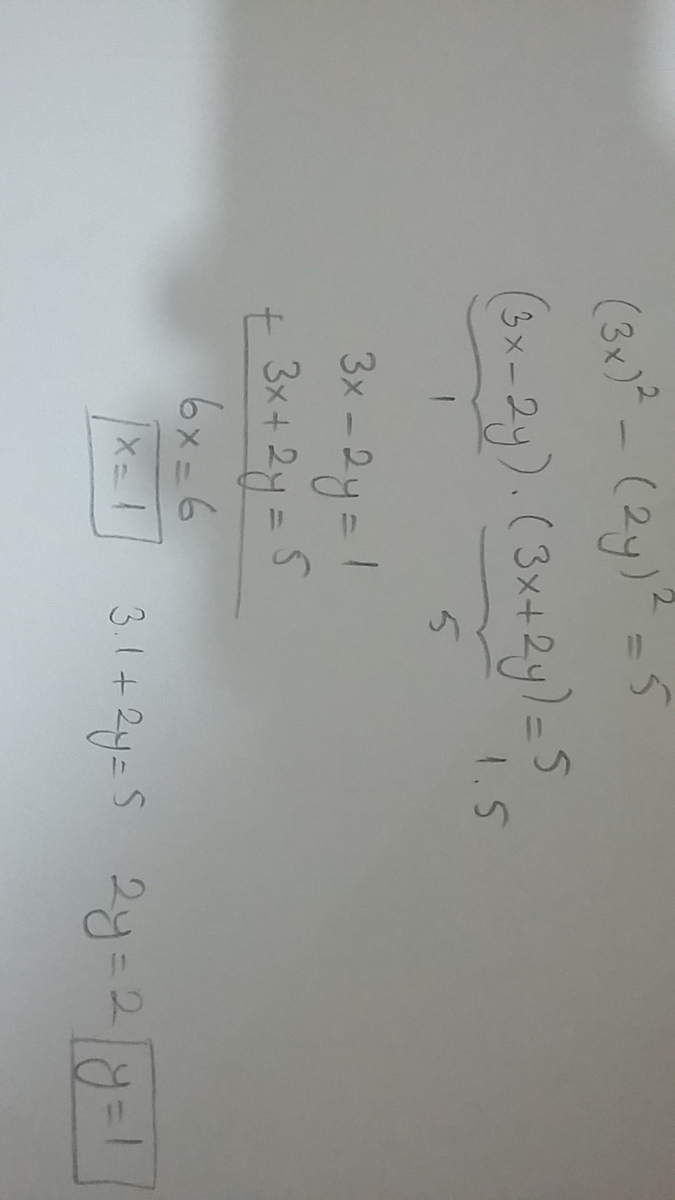 (3x)² - (2y)² = 5
(3x - 2y) . (3x + 2y) = 5
1 5 1.5
3x - 2y = 1
+ 3x + 2y = 5
6x = 6
x = 1 3.1 + 2y = 5 2y = 2 y = 1